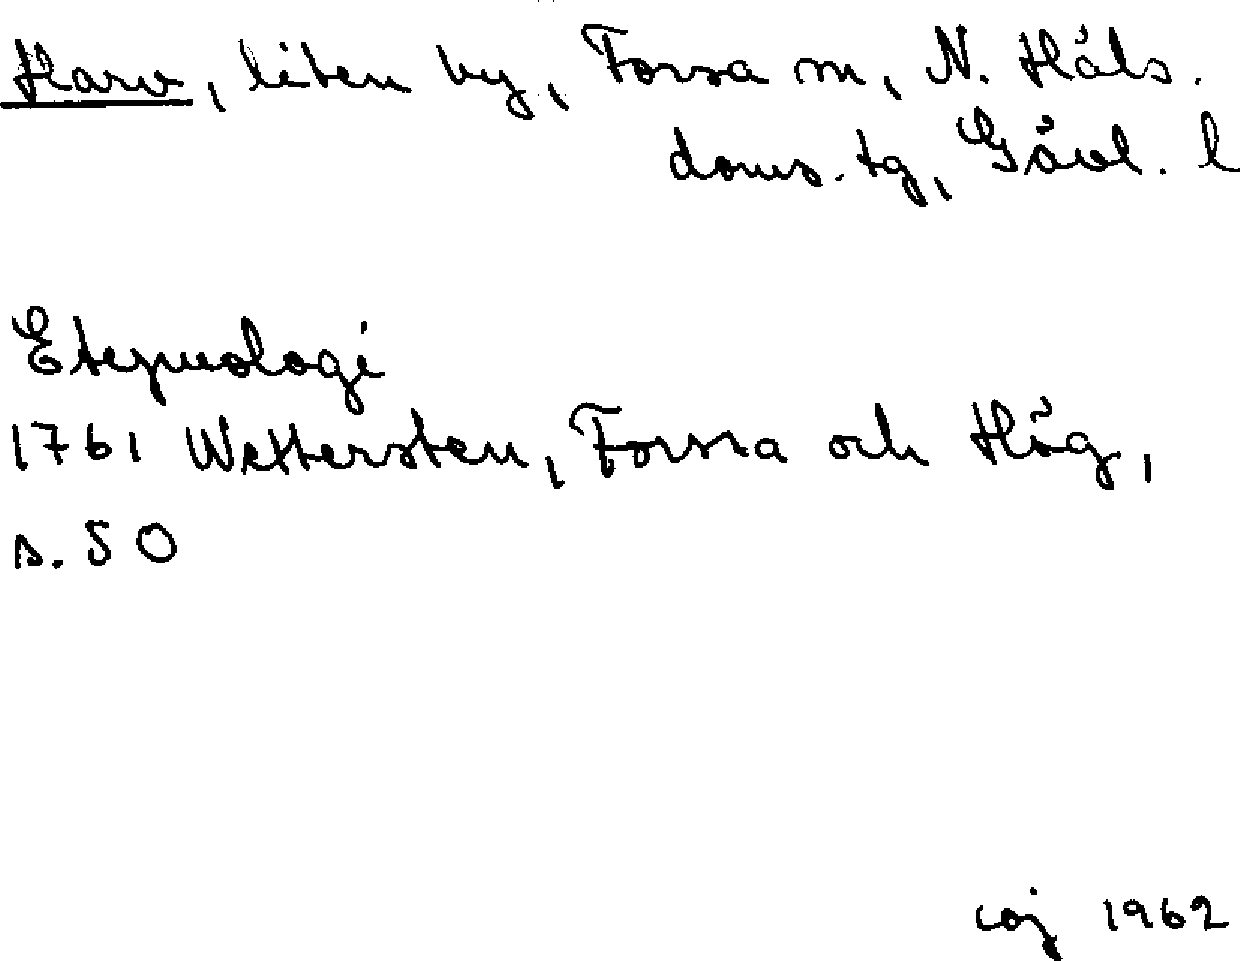 Harv, liten by, Forsa sn, N. Häls.
doms. tg, Gävl. l
Etymologi
1761 Wettersten, Forssa och Hög,
s. 50
coj 1962